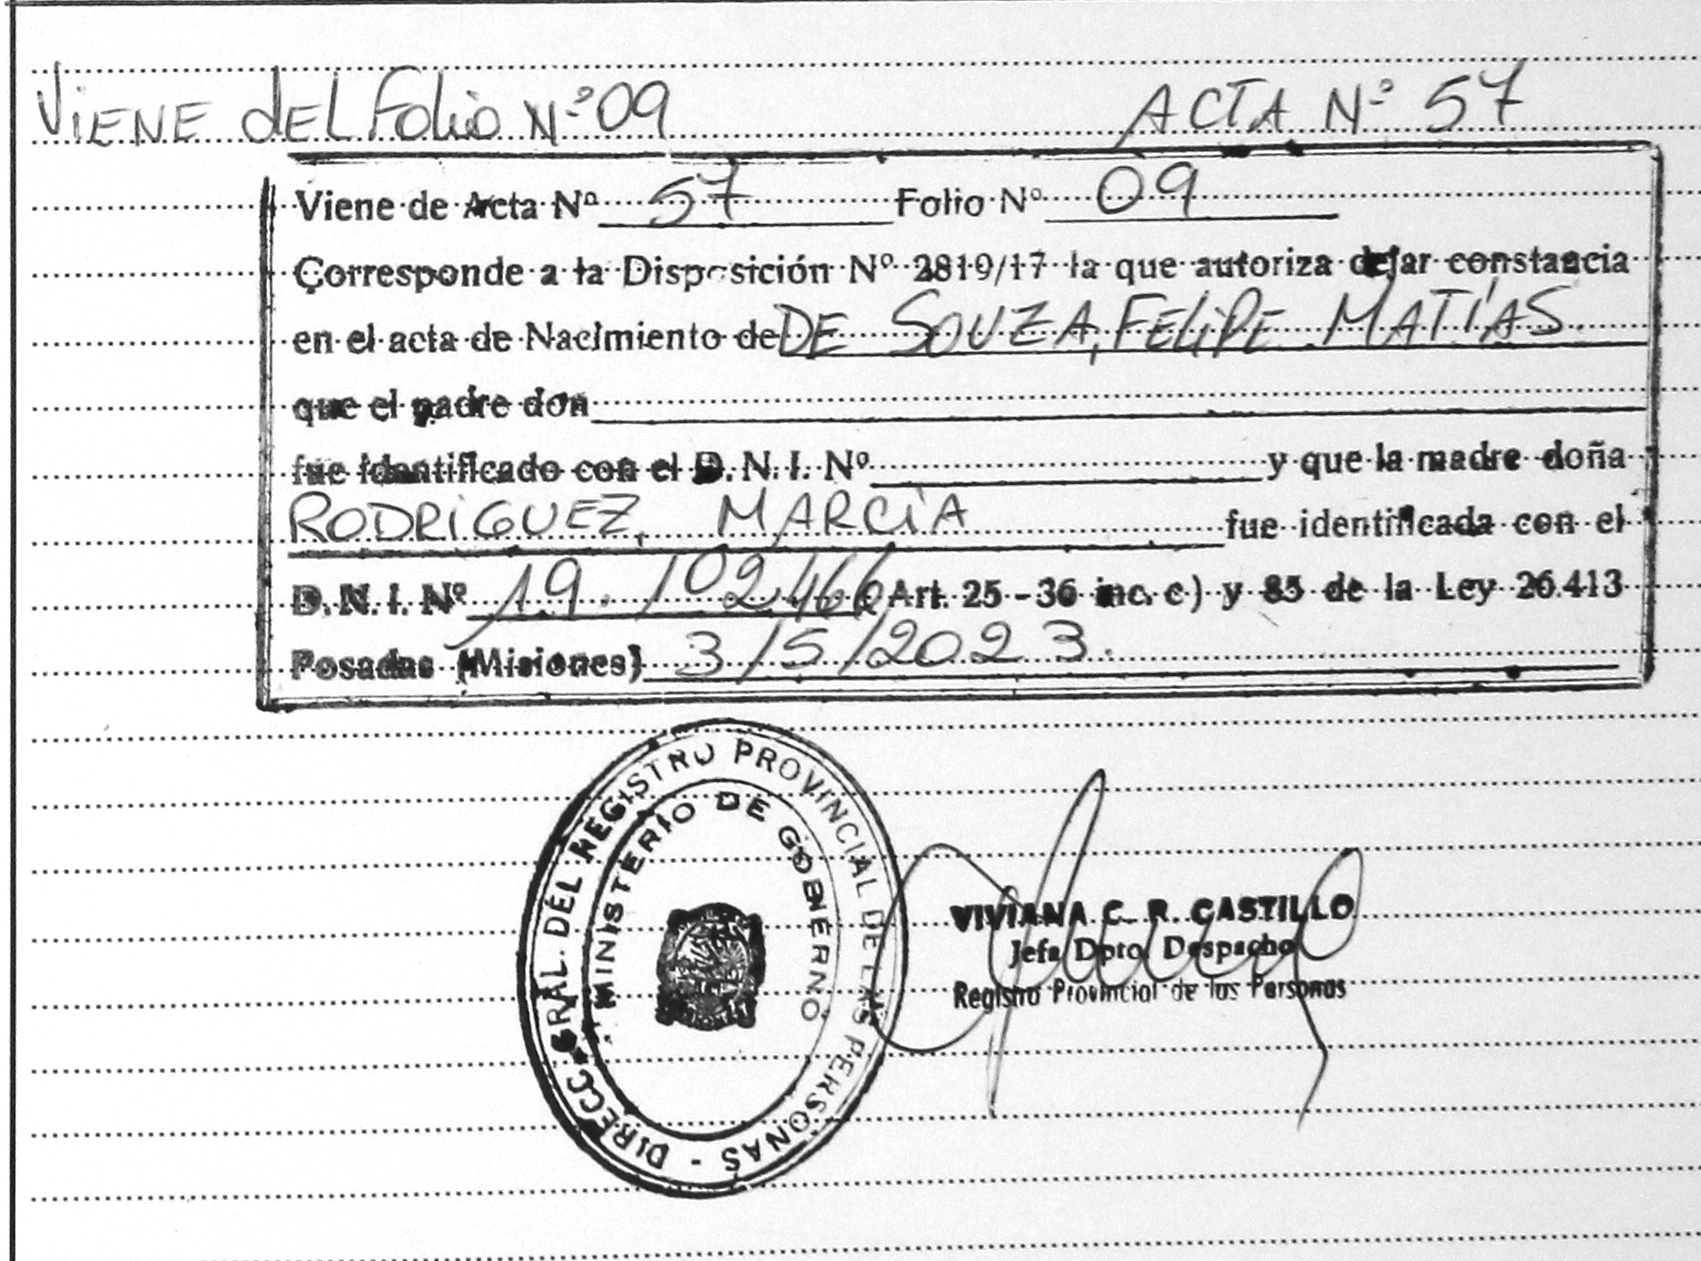 VIENE dEL Folio Nº 09 ACTA Nº 57
Viene de Acta Nº 57 Folio Nº 09
Corresponde a la Disposición Nº 2819/17 la que autoriza dejar constancia
en el acta de Nacimiento de DE SOUZA, FELIPE MATÍAS.
que el padre don
fue identificado con el D. N. I. Nº y que la madre doña
RODRIGUEZ, MARCIA fue identificada con el
D. N. I. Nº 19.102.466 (Art. 25 - 36 inc. c) y 85 de la Ley 26.413
Posadas (Misiones) 3/5/2023.
DIRECC. GRAL. DEL REGISTRO PROVINCIAL DE LAS PERSONAS -
MINISTERIO DE GOBIERNO
VIVIANA C. R. CASTILLO
Jefa Dpto. Despacho
Registro Provincial de las Personas